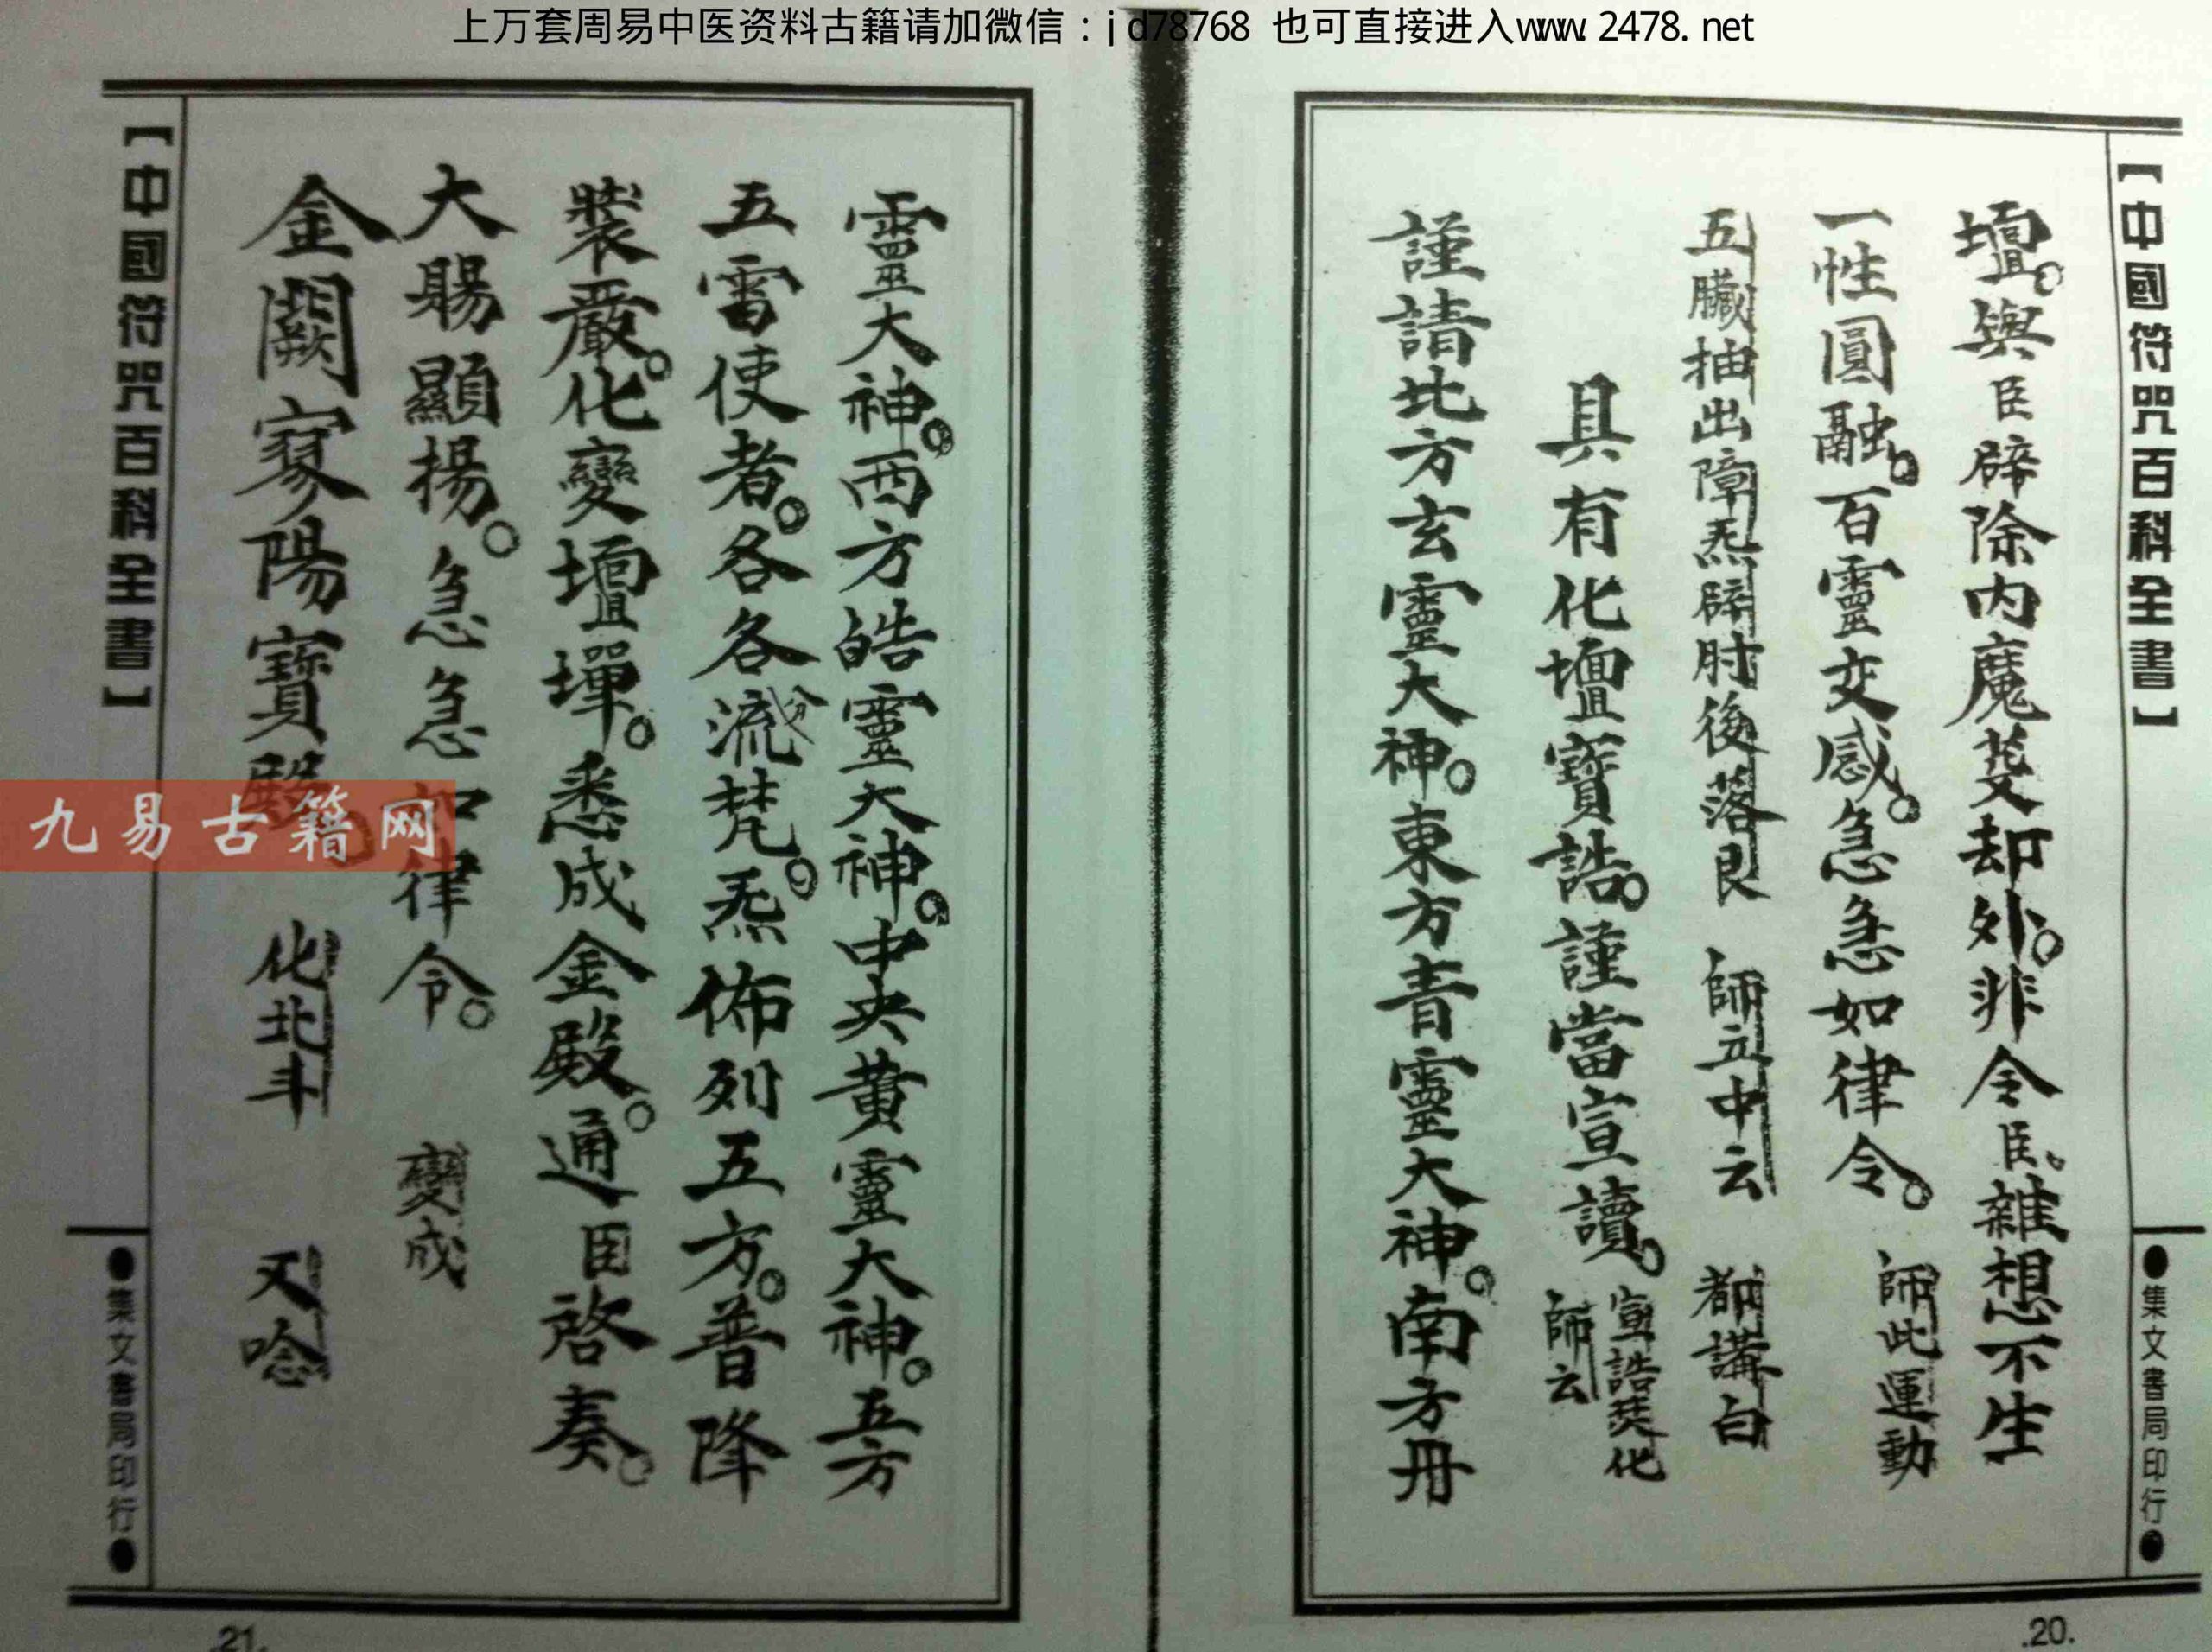 上万套周易中医资料古籍请加微信：jd78768 也可直接进入www.2478.net
【中國符咒百科全書】
●集文書局印行●
壇。與臣辟除内魔芟却外。非令臣。雜想不生
一性圓融。百靈交感。急急如律令。師此運動
五臟抽出障炁辟肘後落艮 師立中云 都講白
具有化壇寶誥。謹當宣讀。宣誥焚化師云
謹請北方玄靈大神。東方青靈大神。南方丹
.20.
靈大神。西方皓靈大神。中央黄靈大神。五方
五雷使者。各各流分梵。炁佈列五方。普降
裝嚴。化變壇墠。悉成金殿。通臣啓奏。
大賜顯揚。急急如律令。 變成
金闕寥陽寶殿。 化北斗 又唸
【中國符咒百科全書】
●集文書局印行●
.21.
九易古籍网